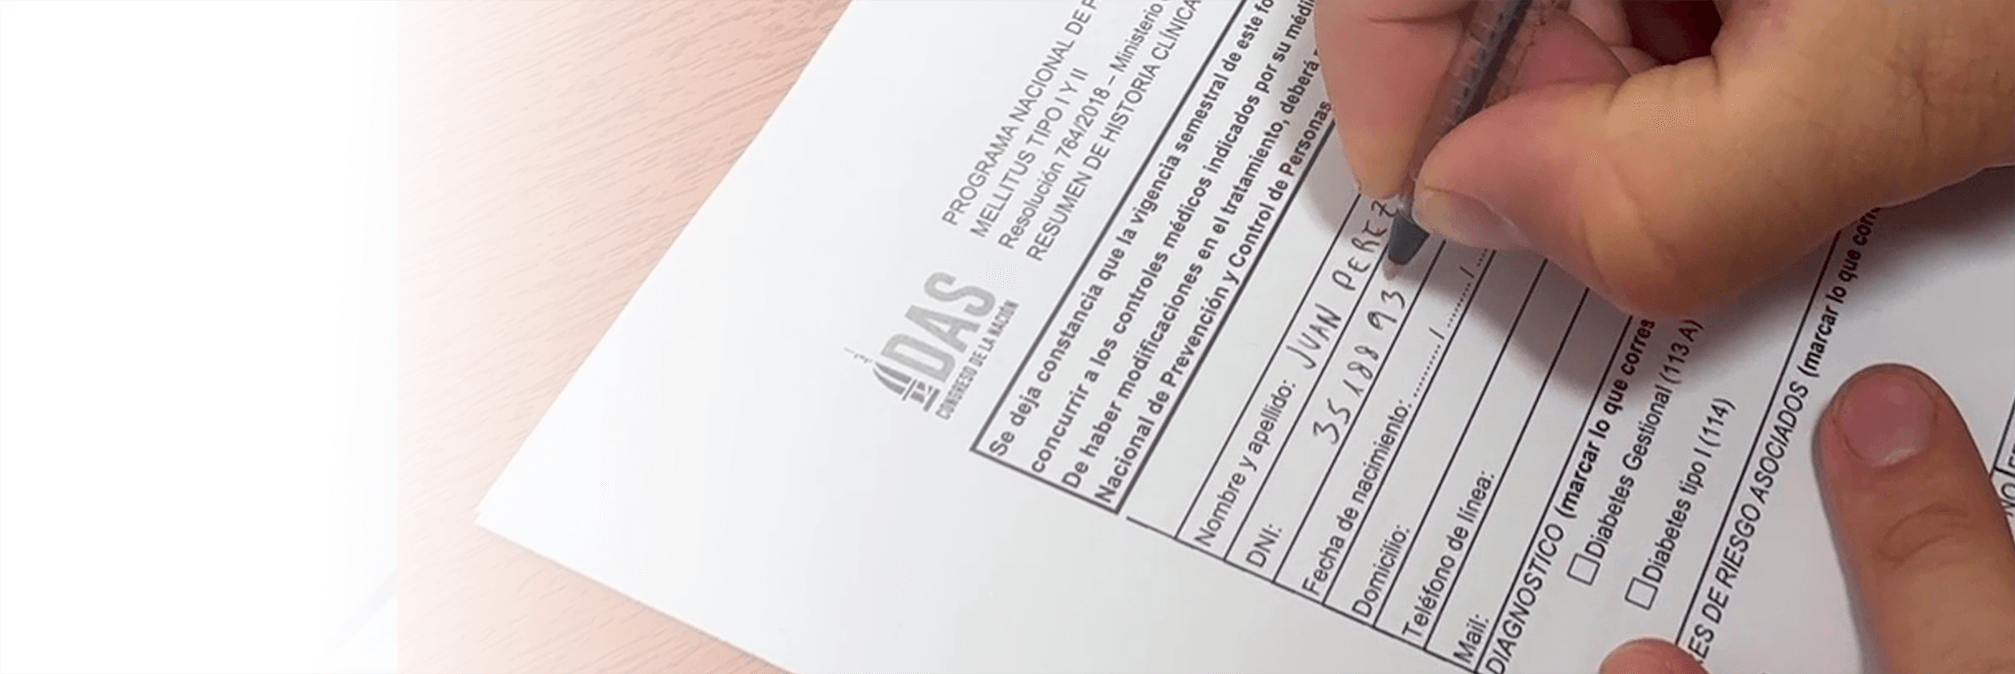 DAS
CONGRESO DE LA NACIÓN
PROGRAMA NACIONAL DE
MELLITUS TIPO I Y II
Resolución 764/2018 – Ministerio
RESUMEN DE HISTORIA CLÍNICA
Se deja constancia que la vigencia semestral de este
concurrir a los controles médicos indicados por su
De haber modificaciones en el tratamiento, deberá
Nacional de Prevención y Control de Personas
Nombre y apellido: JUAN PEREZ
DNI: 35 188 93
Fecha de nacimiento: ........../..........
Domicilio:
Teléfono de línea:
Mail:
DIAGNOSTICO (marcar lo que
☐Diabetes Gestional (113 A)
☐Diabetes tipo I (114)
DE RIESGO ASOCIADOS (marcar lo que
NO